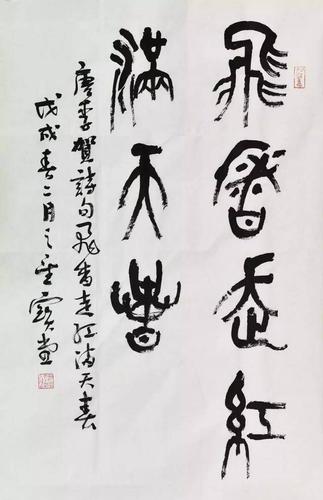 飛香走紅
滿天春
唐李賀詩句飛香走紅滿天春
戊戌春二月之